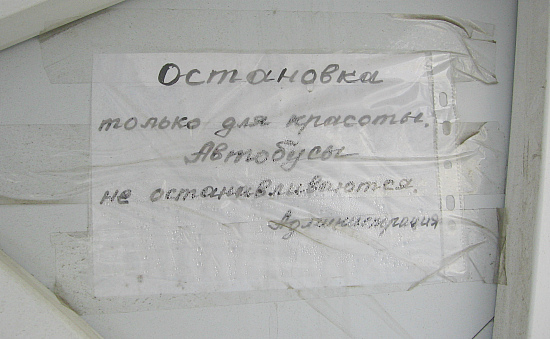 Остановка
только для красоты.
Автобусы
не останавливаются.
Администрация